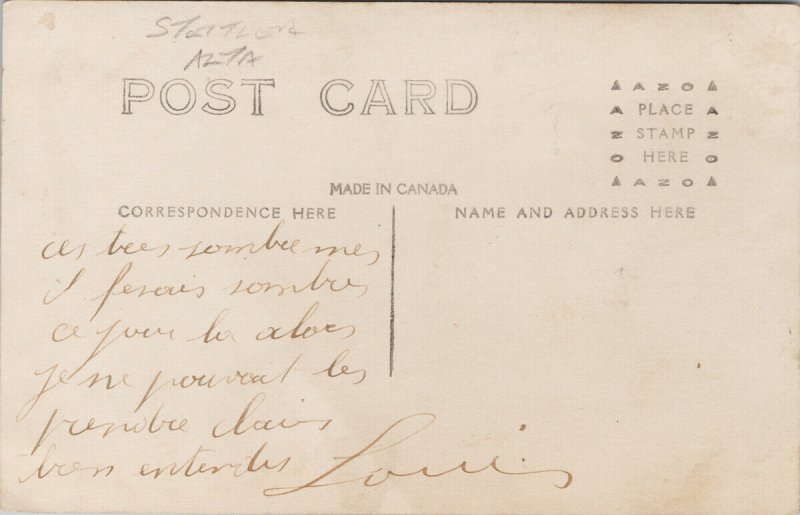 STETTLER
ALTA
POST CARD
▲ A Z O ▲
A PLACE A
Z STAMP Z
O HERE O
▲ A Z O ▲
MADE IN CANADA
CORRESPONDENCE HERE
NAME AND ADDRESS HERE
ces tres sombre mes
il fesais sombres
ce jour la alors
je ne pouvait les
prendre clairs
bien entendis
Louis